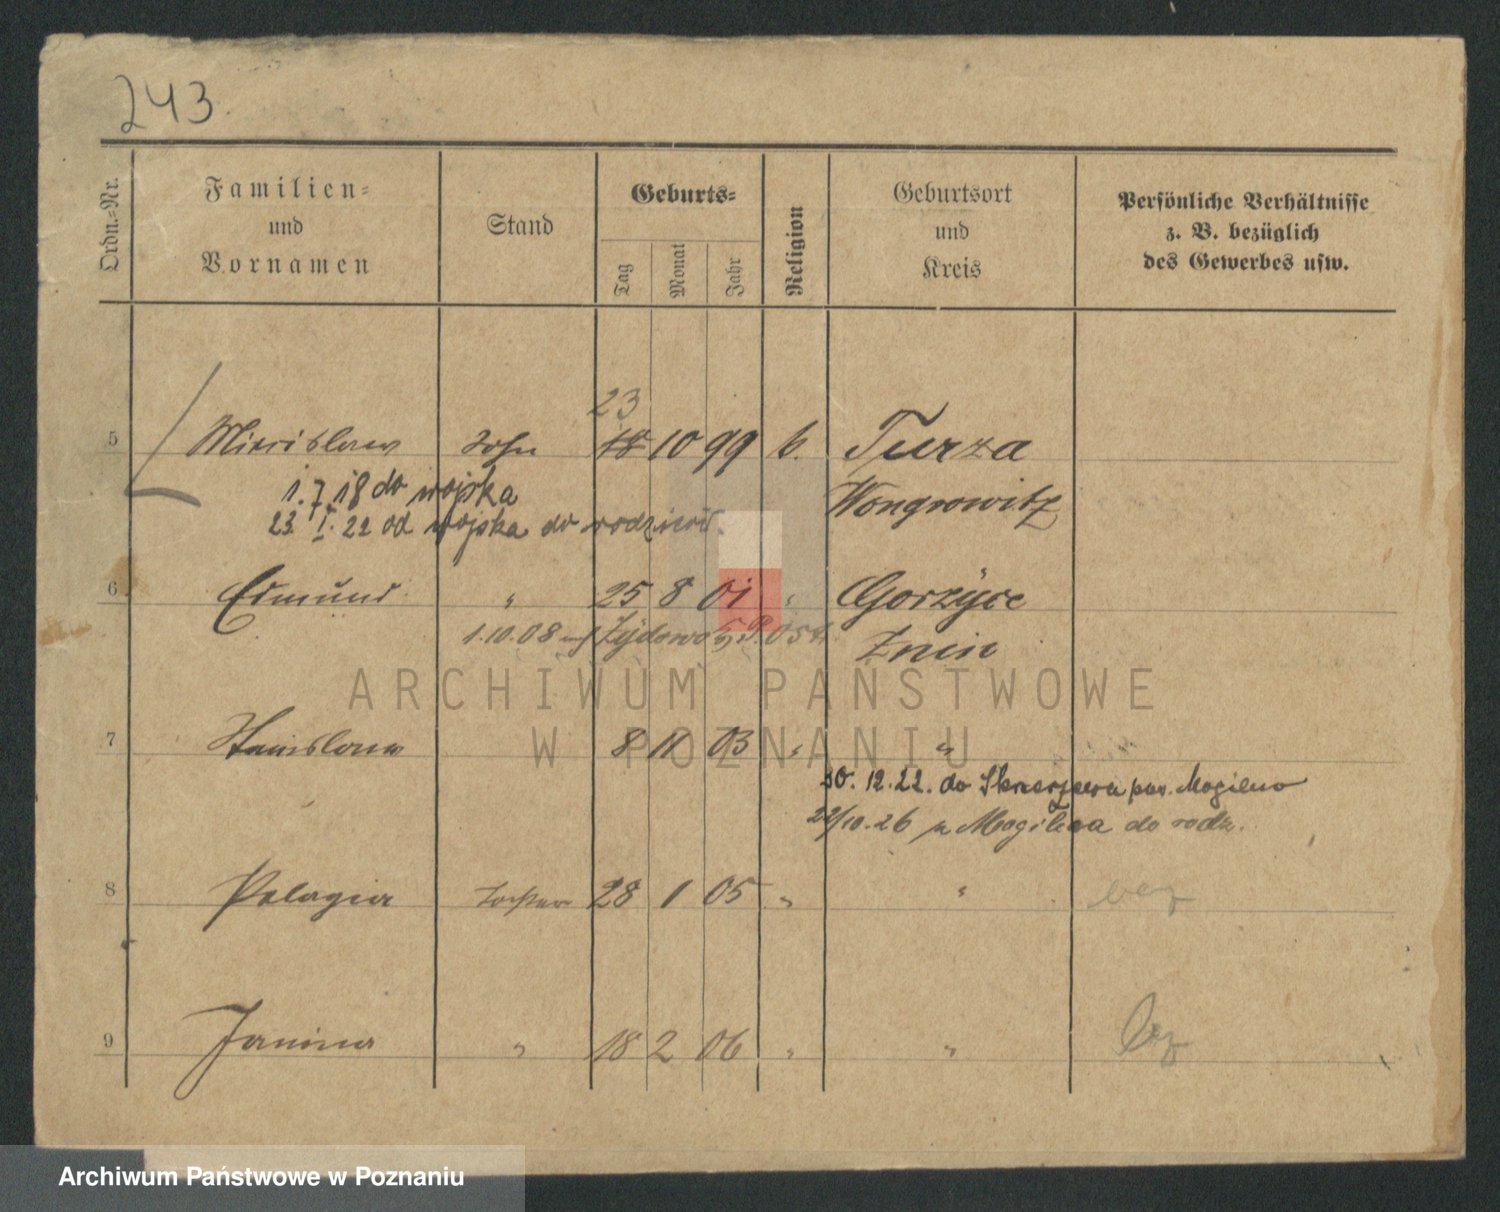 243.
Ordn.-Nr.
Familien-
und
Vornamen
Stand
Geburts-
Tag
Monat
Jahr
Religion
Geburtsort
und
Kreis
Persönliche Verhältnisse
z. B. bezüglich
des Gewerbes usw.
23
5 Miecislaw Sohn 18 10 99 k. Turza
1. 7. 18 do wojska Wongrowitz
23. I. 22 od wojska do rodziców.
6 Edmund " 25 8 01 " Gorzyce
1.10.08 Żydowo Znin
7 Stanislaus 8 11 03 " "
30. 12. 22. do pow. Mogilno
22/10. 26 z Mogilna do rodz.
8 Pelagia Tochter 28 1 05 " " bez
9 Janina " 18 2 06 " " bez
ARCHIWUM PAŃSTWOWE
W POZNANIU
Archiwum Państwowe w Poznaniu